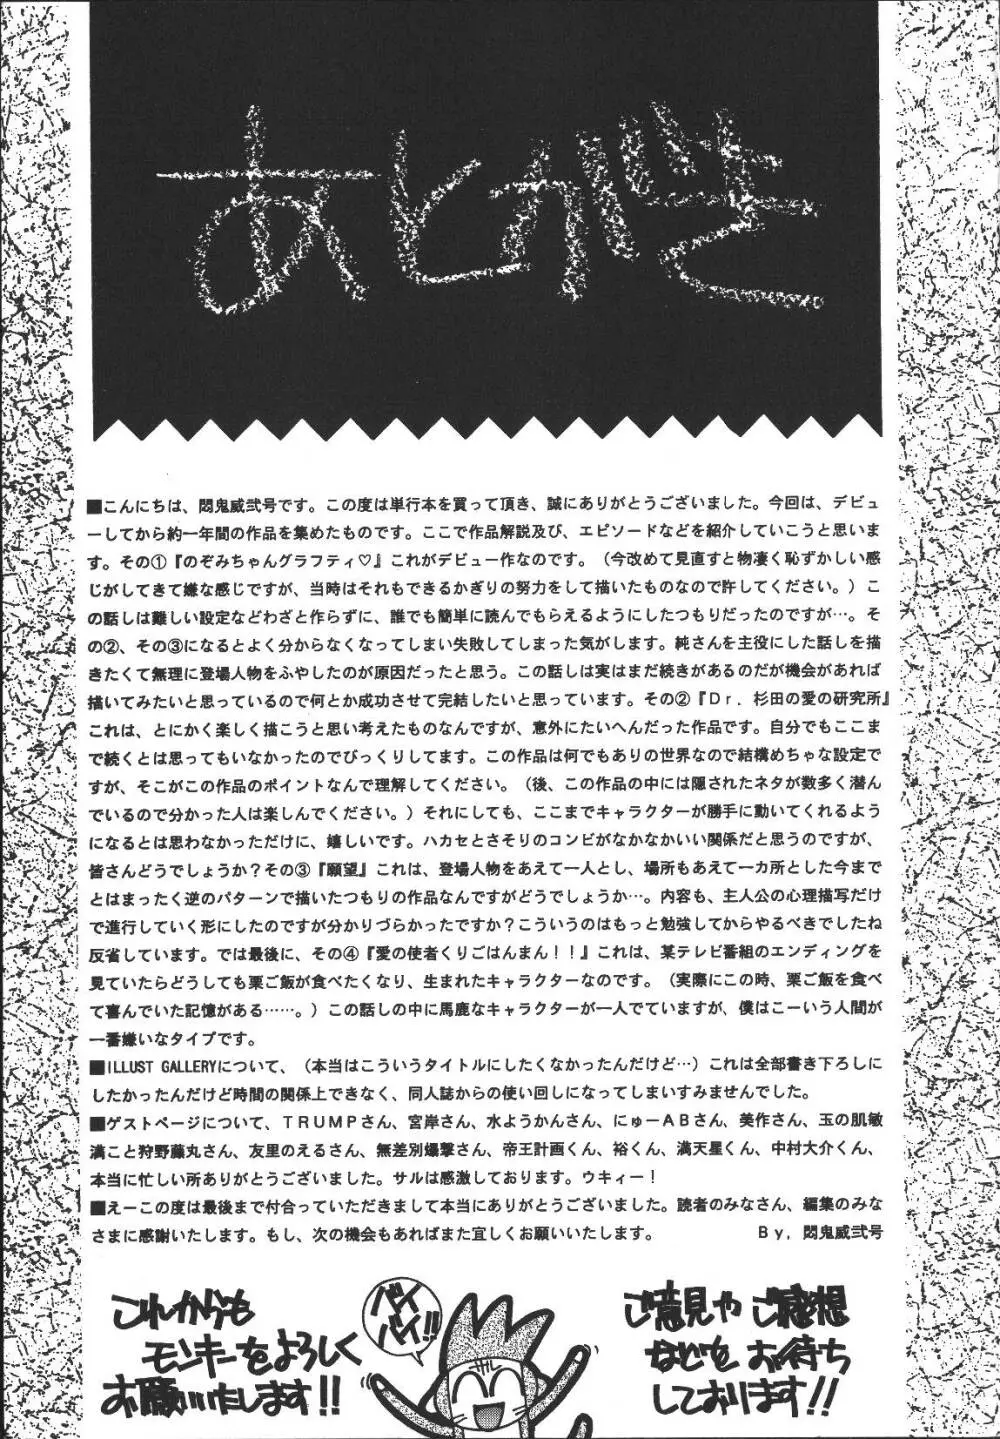 あとがき
■こんにちは、悶鬼威弐号です。この度は単行本を買って頂き、誠にありがとうございました。今回は、デビュ
ーしてから約一年間の作品を集めたものです。ここで作品解説及び、エピソードなどを紹介していこうと思いま
す。その①『のぞみちゃんグラフティ♡』これがデビュー作なのです。（今改めて見直すと物凄く恥ずかしい感
じがしてきて嫌な感じですが、当時はそれもできるかぎりの努力をして描いたものなので許してください。）こ
の話しは難しい設定などわざと作らずに、誰でも簡単に読んでもらえるようにしたつもりだったのですが…。そ
の②、その③になるとよく分からなくなってしまい失敗してしまった気がします。純さんを主役にした話しを描
きたくて無理に登場人物をふやしたのが原因だったと思う。この話しは実はまだ続きがあるのだが機会があれば
描いてみたいと思っているので何とか成功させて完結したいと思っています。その②『Ｄｒ．杉田の愛の研究所』
これは、とにかく楽しく描こうと思い考えたものなんですが、意外にたいへんだった作品です。自分でもここま
で続くとは思ってもいなかったのでびっくりしてます。この作品は何でもありの世界なので結構めちゃな設定で
すが、そこがこの作品のポイントなんで理解してください。（後、この作品の中には隠されたネタが数多く潜ん
でいるので分かった人は楽しんでください。）それにしても、ここまでキャラクターが勝手に動いてくれるよう
になるとは思わなかっただけに、嬉しいです。ハカセとさそりのコンビがなかなかいい関係だと思うのですが、
皆さんどうでしょうか？その③『願望』これは、登場人物をあえて一人とし、場所もあえて一カ所とした今まで
とはまったく逆のパターンで描いたつもりの作品なんですがどうでしょうか…。内容も、主人公の心理描写だけ
で進行していく形にしたのですが分かりづらかったですか？こういうのはもっと勉強してからやるべきでしたね
反省しています。では最後に、その④『愛の使者くりごはんまん！！』これは、某テレビ番組のエンディングを
見ていたらどうしても栗ご飯が食べたくなり、生まれたキャラクターなのです。（実際にこの時、栗ご飯を食べ
て喜んでいた記憶がある……。）この話しの中に馬鹿なキャラクターが一人でていますが、僕はこーいう人間が
一番嫌いなタイプです。
■ILLUST GALLERYについて、（本当はこういうタイトルにしたくなかったんだけど…）これは全部書き下ろしに
したかったんだけど時間の関係上できなく、同人誌からの使い回しになってしまいすみませんでした。
■ゲストページについて、ＴＲＵＭＰさん、宮岸さん、水ようかんさん、にゅーＡＢさん、美作さん、玉の肌敏
満こと狩野藤丸さん、友里のえるさん、無差別爆撃さん、帝王計画くん、裕くん、満天星くん、中村大介くん、
本当に忙しい所ありがとうございました。サルは感激しております。ウキィー！
■えーこの度は最後まで付合っていただきまして本当にありがとうございました。読者のみなさん、編集のみな
さまに感謝いたします。もし、次の機会もあればまた宜しくお願いいたします。　Ｂｙ，悶鬼威弐号
これからも
モンキーをよろしく
お願いいたします!!
バイ
バイ!!
ご意見や ご感想
などを お待ち
しております!!